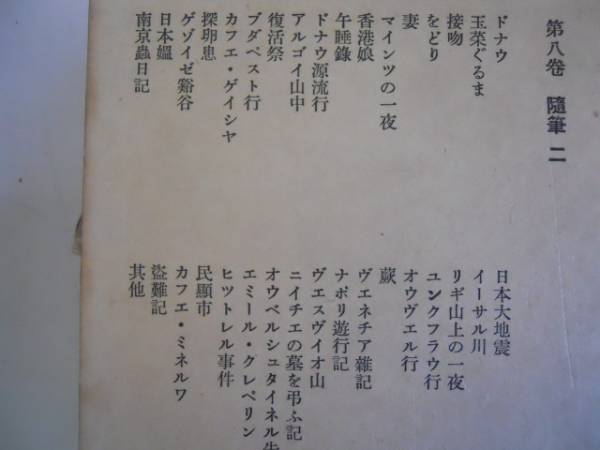 第八巻　隨筆　二
ドナウ
玉菜ぐるま
接吻
をどり
妻
マインツの一夜
香港娘
午睡錄
ドナウ源流行
アルゴイ山中
復活祭
ブダペスト行
カフエ・ゲイシヤ
探卵患
ゲゾイゼ谿谷
日本媼
南京蟲日記
日本大地震
イーサル川
リギ山上の一夜
ユンクフラウ行
オウヴエル行
蕨
ヴエネチア雜記
ナポリ遊行記
ヴエスヴイオ山
ニイチエの墓を弔ふ記
オウベルシュタイネル先
エミール・クレペリン
ヒツトレル事件
民顯市
カフエ・ミネルワ
盜難記
其他